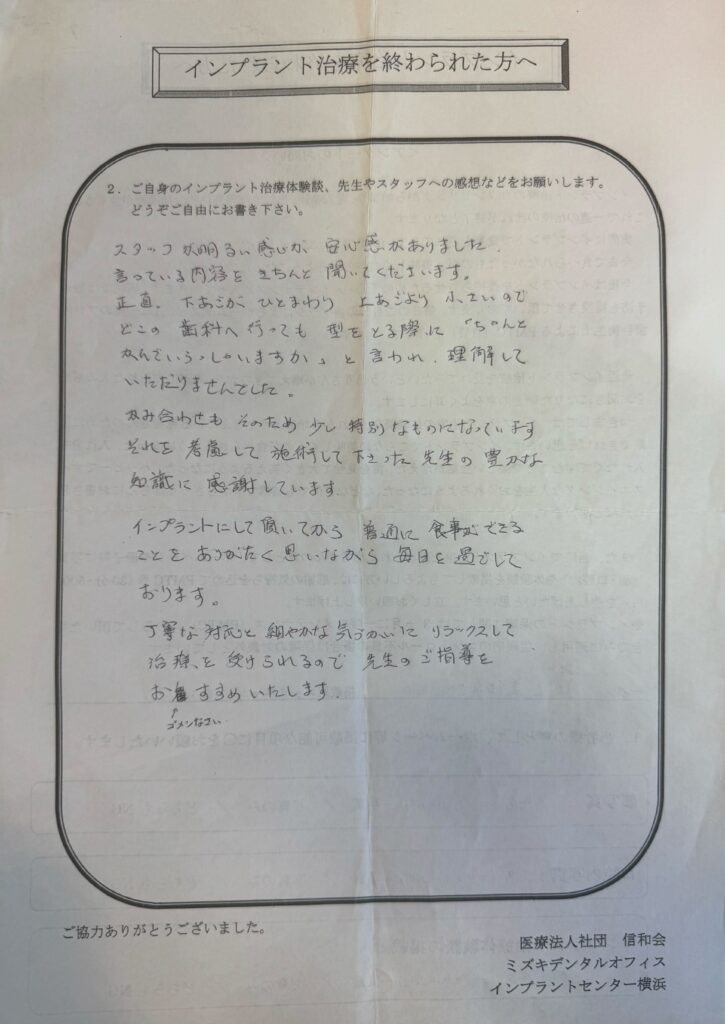 インプラント治療を終わられた方へ
2．ご自身のインプラント治療体験談、先生やスタッフへの感想などをお願いします。
どうぞご自由にお書き下さい。
スタッフが明るい感じが 安心感がありました。
言っている内容を きちんと 聞いてくださいます。
正直、下あごが ひとまわり 上あごより 小さいので
どこの 歯科へ 行っても 型をとる際に「ちゃんと
かんでいらっしゃいますか」と 言われ、理解して
いただけませんでした。
かみ合わせも そのため 少し 特別なものになっています
それを 考慮して 施術して下さった 先生の 豊かな
知識に 感謝しています。
インプラントにして頂いてから 普通に 食事ができる
ことを ありがたく 思いながら 毎日を 過ごして
おります。
丁寧な 対応と 細やかな 気づかいに リラックスして
治療を 受けられるので 先生の ご指導を
おすすめいたします。
↑
ゴメンなさい
ご協力ありがとうございました。
医療法人社団 信和会
ミズキデンタルオフィス
インプラントセンター横浜